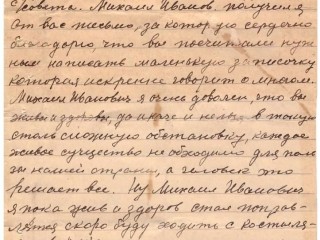 с/совета. Михаил Иванов. получил я
от вас письмо, за которую сердечно
благодарю, что вы посчитали нуж
ным написать маленькую записочку
которая искренне говорит о многом.
Михаил Иванович я очень доволен, что вы
живы и здоровы, да иначе и нельзя в такую
столь сложную обстановку, каждое
живое существо необходимо для поль
зы нашей страны, а человек это
решает все. Ну Михаил Иванович
я пока жив и здоров стал поправ-
ляться скоро буду ходить с костыля-